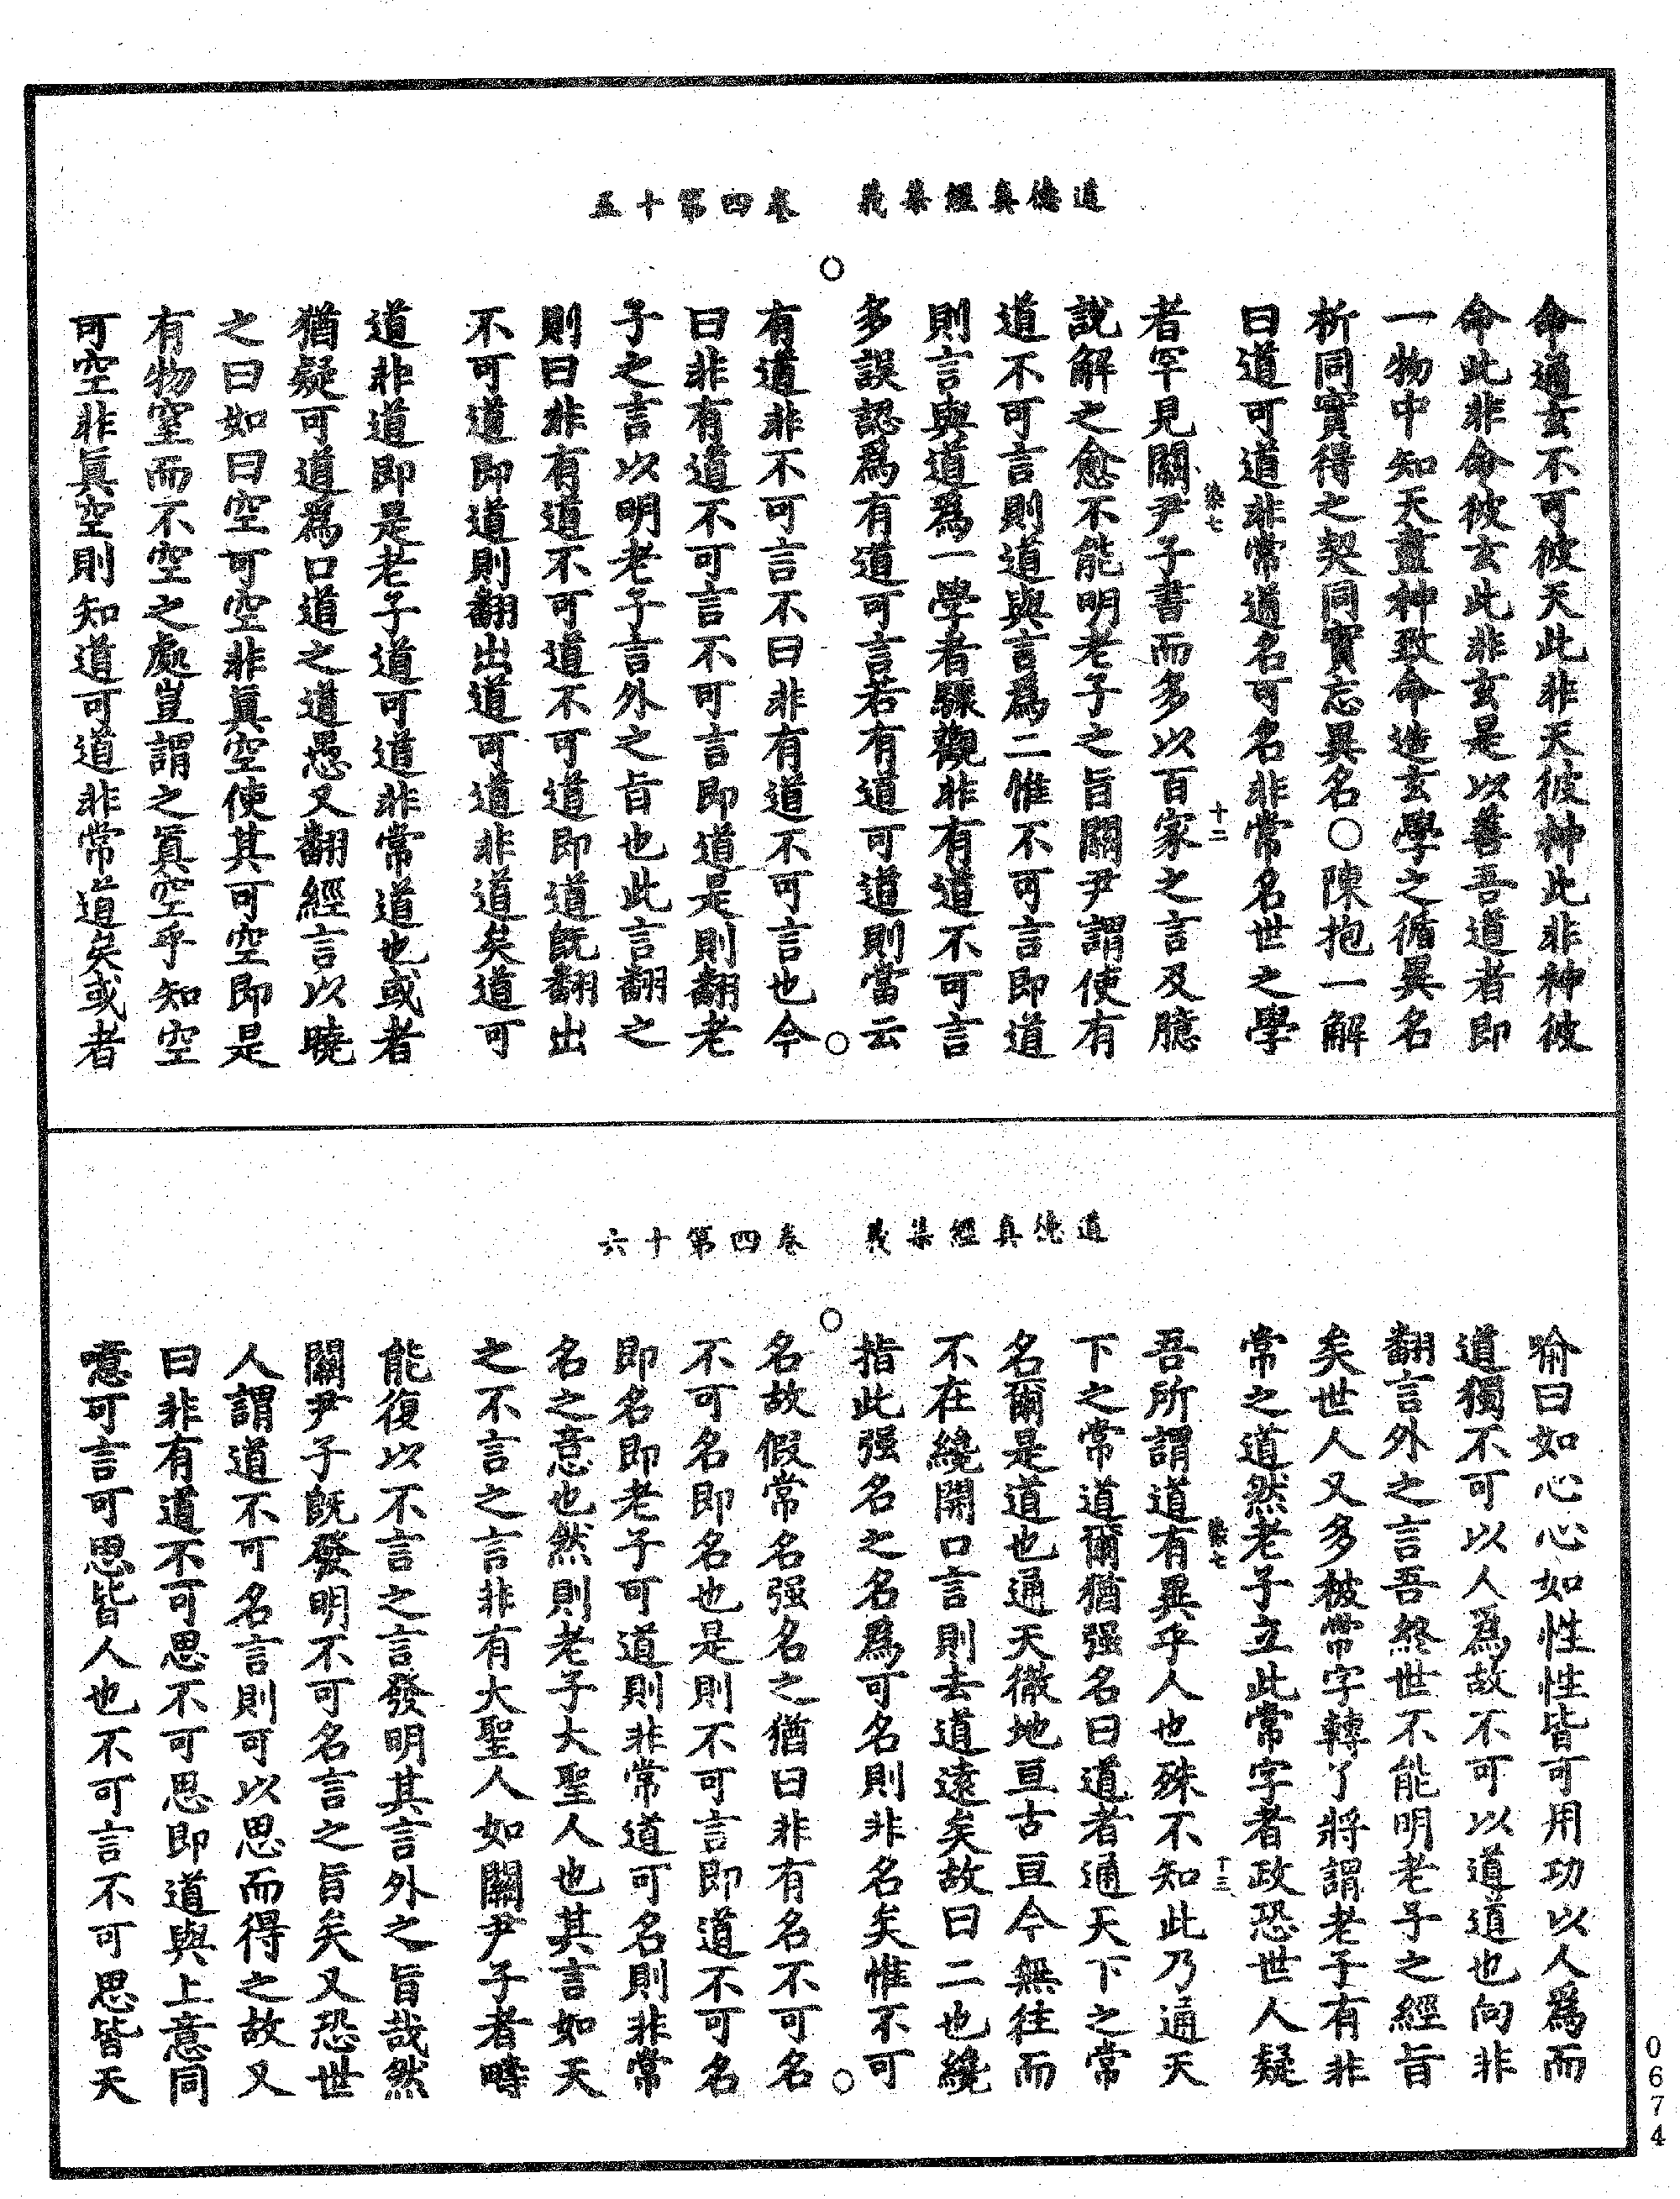 道德真經集義　卷四第十五
命通玄不可彼天此非天彼神此非神彼
命此非命彼玄此非玄是以善吾道者即
一物中知天盡神致命造玄學之徇異名
析同實得之契同實忘異名○陳抱一解
曰道可道非常道名可名非常名世之學
染七　十二
者罕見關尹子書而多以百家之言及臆
說解之愈不能明老子之旨關尹謂使有
道不可言則道與言爲二惟不可言即道
則言與道爲一學者驟觀非有道不可言
多誤認爲有道可言若有道可道則當云
有道非不可言不曰非有道不可言也今
曰非有道不可言不可言即道是則翻老
子之言以明老子言外之旨也此言翻之
則曰非有道不可道不可道即道旣翻出
不可道即道則翻出道可道非道矣道可
道非道即是老子道可道非常道也或者
猶疑可道爲口道之道愚又翻經言以曉
之曰如曰空可空非眞空使其可空即是
有物窒而不空之處豈謂之眞空乎知空
可空非眞空則知道可道非常道矣或者
道德真經集義　卷四第十六
喻曰如心心如性性皆可用功以人爲而
道獨不可以人爲故不可以道道也向非
翻言外之言吾終世不能明老子之經旨
矣世人又多被常字轉了將謂老子有非
常之道然老子立此常字者政恐世人疑
染七　十三
吾所謂道有異乎人也殊不知此乃通天
下之常道爾猶强名曰道者通天下之常
名爾是道也通天徹地亘古亘今無往而
不在纔開口言則去道遠矣故曰二也纔
指此强名之名爲可名則非名矣惟不可
名故假常名强名之猶曰非有名不可名
不可名即名也是則不可言即道不可名
即名即老子可道則非常道可名則非常
名之意也然則老子大聖人也其言如天
之不言之言非有大聖人如關尹子者疇
能復以不言之言發明其言外之旨哉然
關尹子旣發明不可名言之旨矣又恐世
人謂道不可名言則可以思而得之故又
曰非有道不可思不可思即道與上意同
噫可言可思皆人也不可言不可思皆天
0674